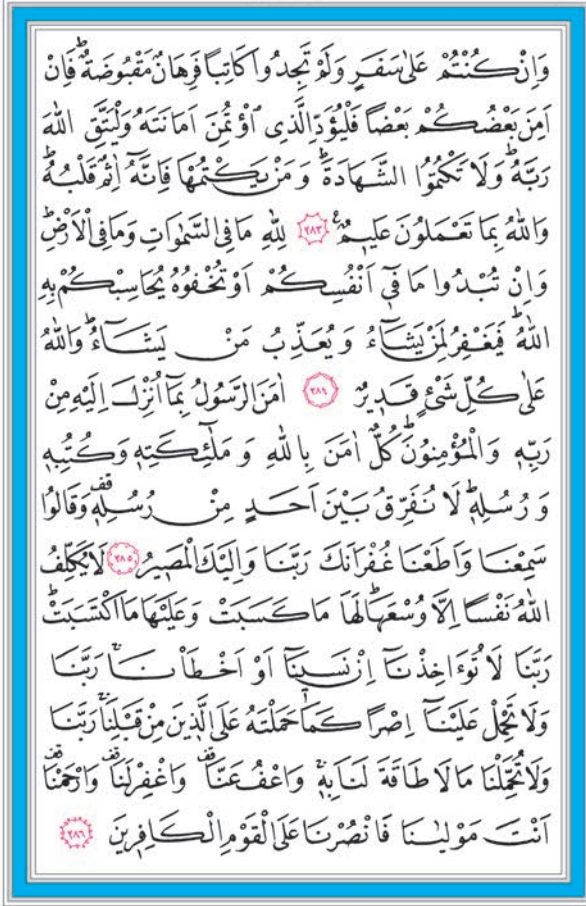 وَاِنْ كُنْتُمْ عَلٰى سَفَرٍ وَلَمْ تَجِدُوا كَاتِبًا فَرِهَانٌ مَقْبُوضَةٌۜ فَاِنْ
اَمِنَ بَعْضُكُمْ بَعْضًا فَلْيُؤَدِّ الَّذِي اؤْتُمِنَ اَمَانَتَهُ وَلْيَتَّقِ اللّٰهَ
رَبَّهُۜ وَلَا تَكْتُمُوا الشَّهَادَةَۜ وَمَنْ يَكْتُمْهَا فَاِنَّهُٓ اٰثِمٌ قَلْبُهُۜ
وَاللّٰهُ بِمَا تَعْمَلُونَ عَلِيمٌ ﴿٢٨٣﴾ لِلّٰهِ مَا فِي السَّمٰوَاتِ وَمَا فِي الْاَرْضِۜ
وَاِنْ تُبْدُوا مَا فِٓي اَنْفُسِكُمْ اَوْ تُخْفُوهُ يُحَاسِبْكُمْ بِهِ
اللّٰهُۜ فَيَغْفِرُ لِمَنْ يَشَٓاءُ وَيُعَذِّبُ مَنْ يَشَٓاءُۜ وَاللّٰهُ
عَلٰى كُلِّ شَيْءٍ قَدِيرٌ ﴿٢٨٤﴾ اٰمَنَ الرَّسُولُ بِمَٓا اُنْزِلَ اِلَيْهِ مِنْ
رَبِّهٖ وَالْمُؤْمِنُونَۜ كُلٌّ اٰمَنَ بِاللّٰهِ وَمَلٰٓئِكَتِهٖ وَكُتُبِهٖ
وَرُسُلِهٖۜ لَا نُفَرِّقُ بَيْنَ اَحَدٍ مِنْ رُسُلِهٖ وَقَالُوا
سَمِعْنَا وَاَطَعْنَا غُفْرَانَكَ رَبَّنَا وَاِلَيْكَ الْمَصِيرُ ﴿٢٨٥﴾ لَا يُكَلِّفُ
اللّٰهُ نَفْسًا اِلَّا وُسْعَهَاۜ لَهَا مَا كَسَبَتْ وَعَلَيْهَا مَا اكْتَسَبَتْۜ
رَبَّنَا لَا تُؤَاخِذْنَٓا اِنْ نَسِينَٓا اَوْ اَخْطَأْنَاۚ رَبَّنَا
وَلَا تَحْمِلْ عَلَيْنَٓا اِصْرًا كَمَا حَمَلْتَهُ عَلَى الَّذِينَ مِنْ قَبْلِنَاۚ رَبَّنَا
وَلَا تُحَمِّلْنَا مَا لَا طَاقَةَ لَنَا بِهٖۚ وَاعْفُ عَنَّا وَاغْفِرْ لَنَا وَارْحَمْنَا
اَنْتَ مَوْلٰينَا فَانْصُرْنَا عَلَى الْقَوْمِ الْكَافِرِينَ ﴿٢٨٦﴾